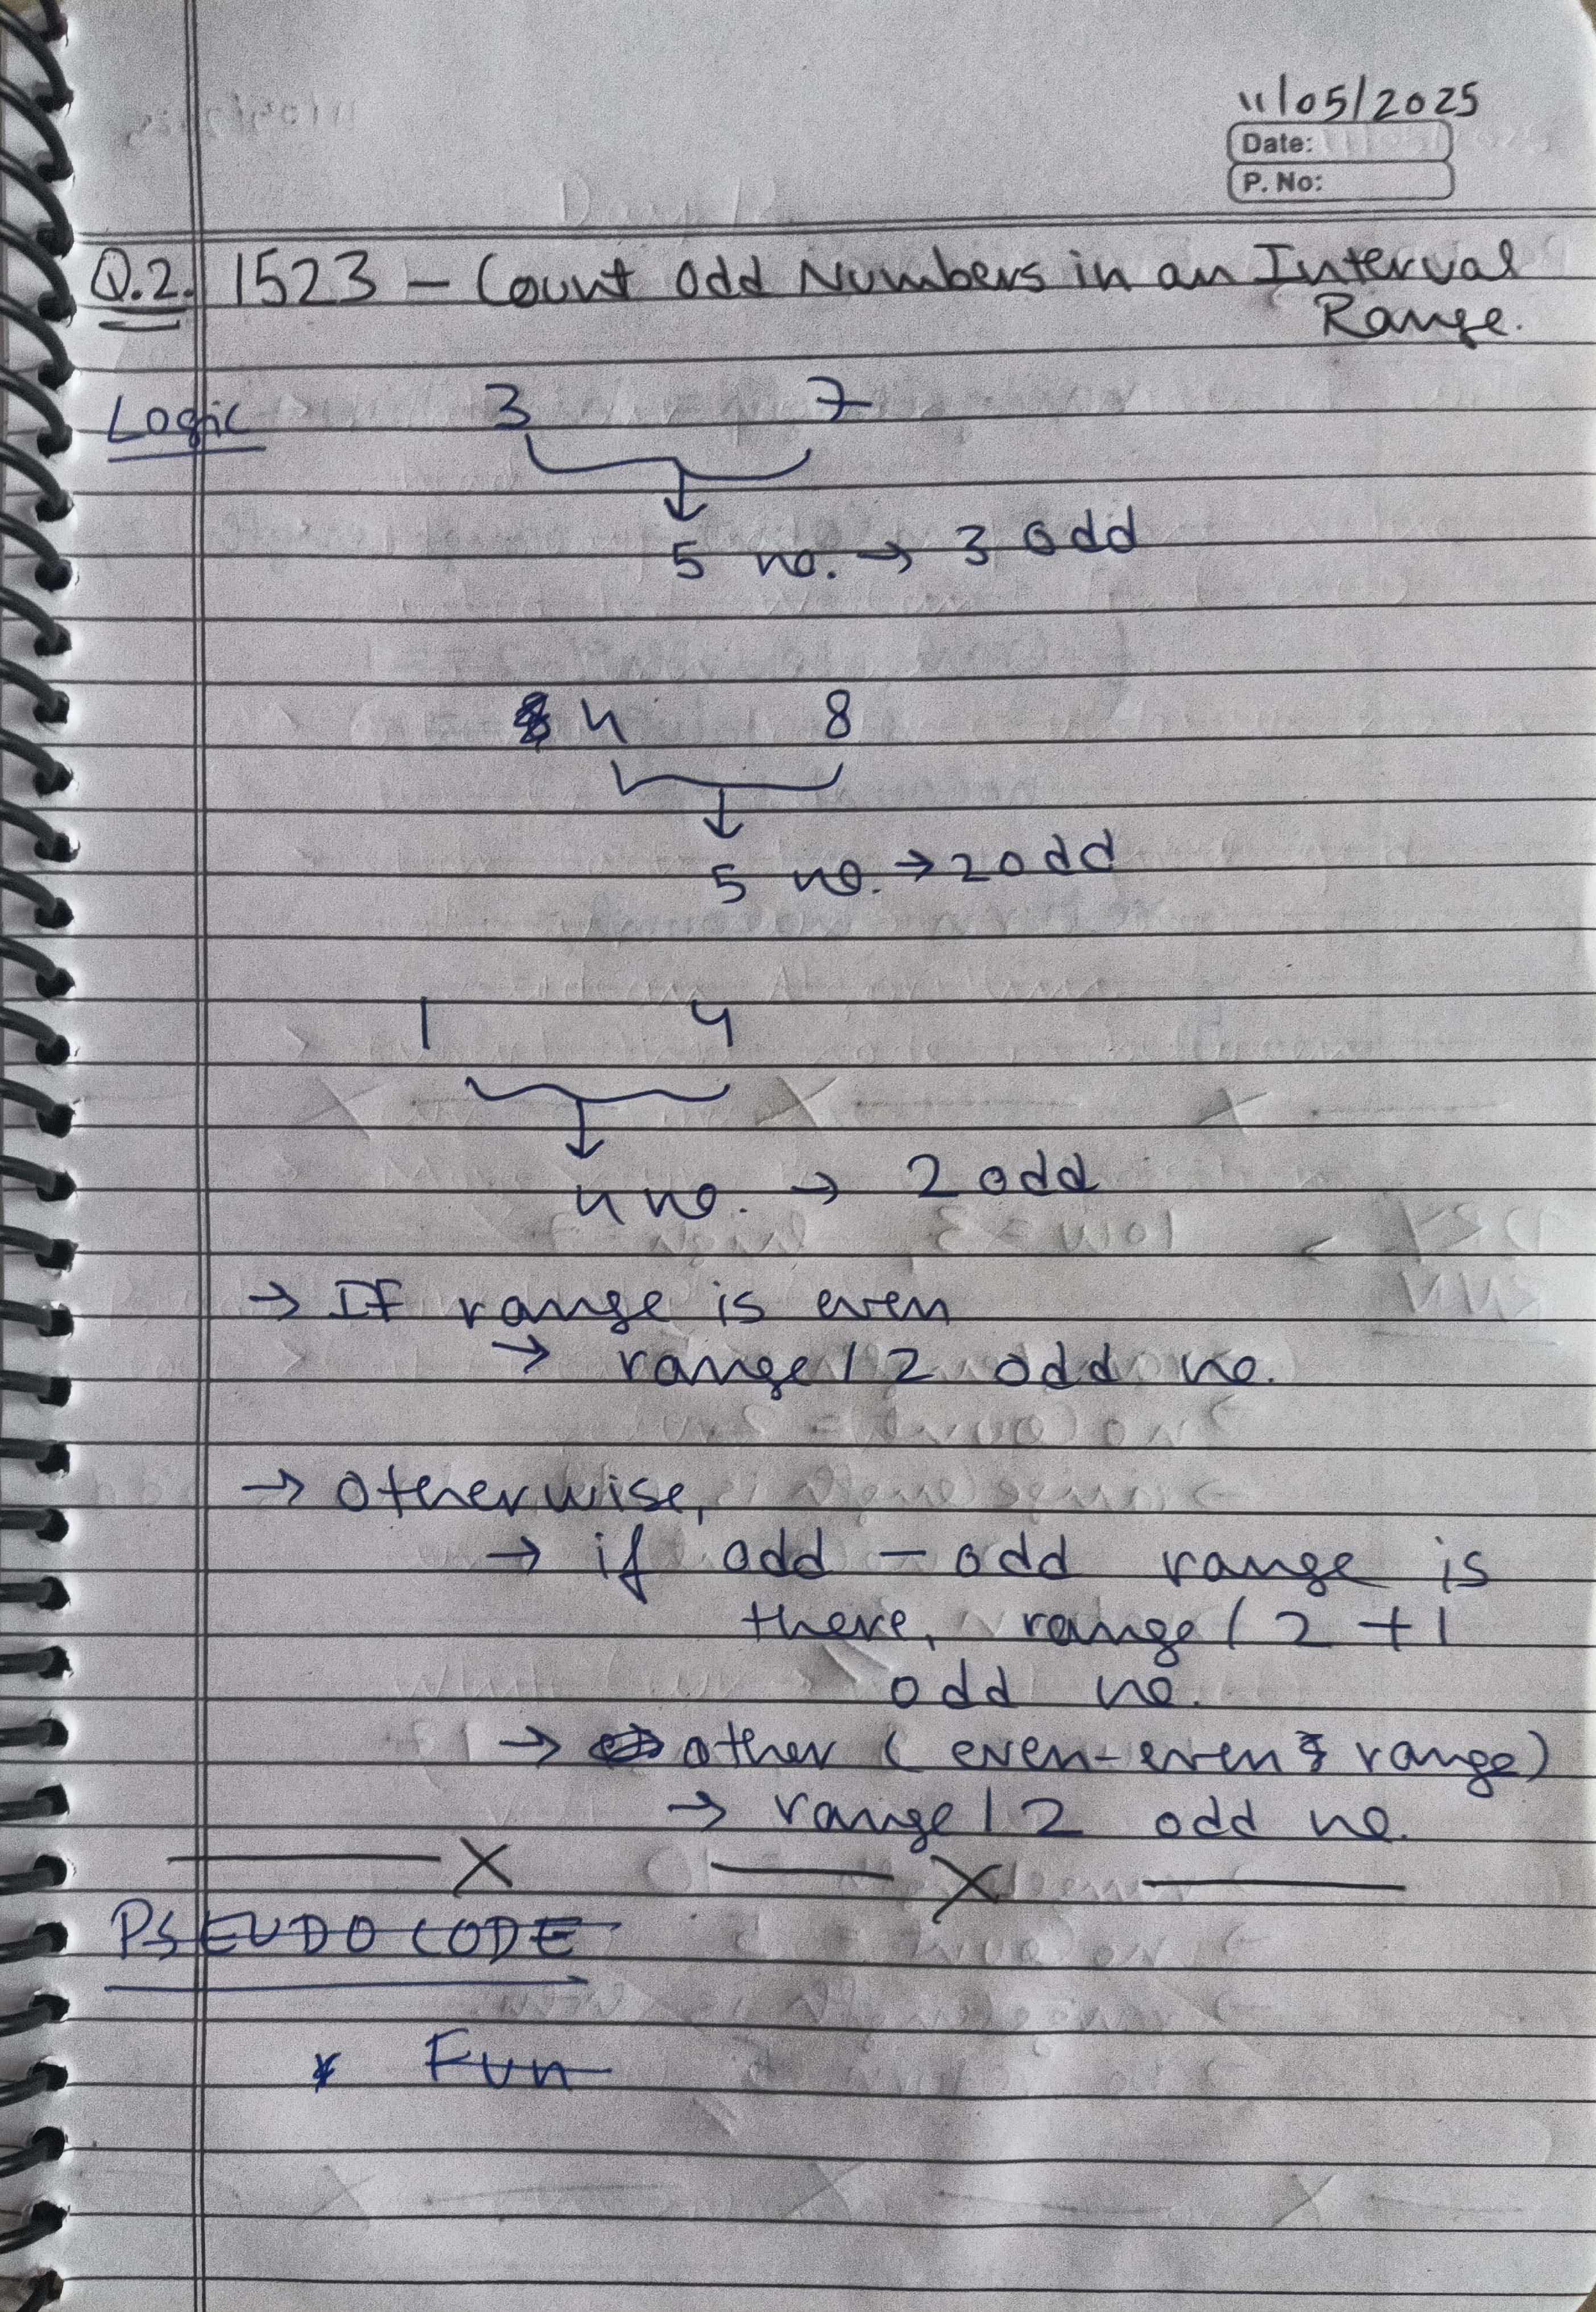 11/05/2025
Date:
P. No:
Q.2. 1523 - Count Odd Numbers in an Interval
Range.
Logic
3 7
5 no. → 3 odd
4 8
5 no. → 2 odd
1 4
4 no. → 2 odd
→ If range is even
→ range/2 odd no.
→ otherwise,
→ if odd - odd range is
there, range/2 + 1
odd no.
→ other (even-even range)
→ range/2 odd no.
X X
PSEUDOCODE
Fun